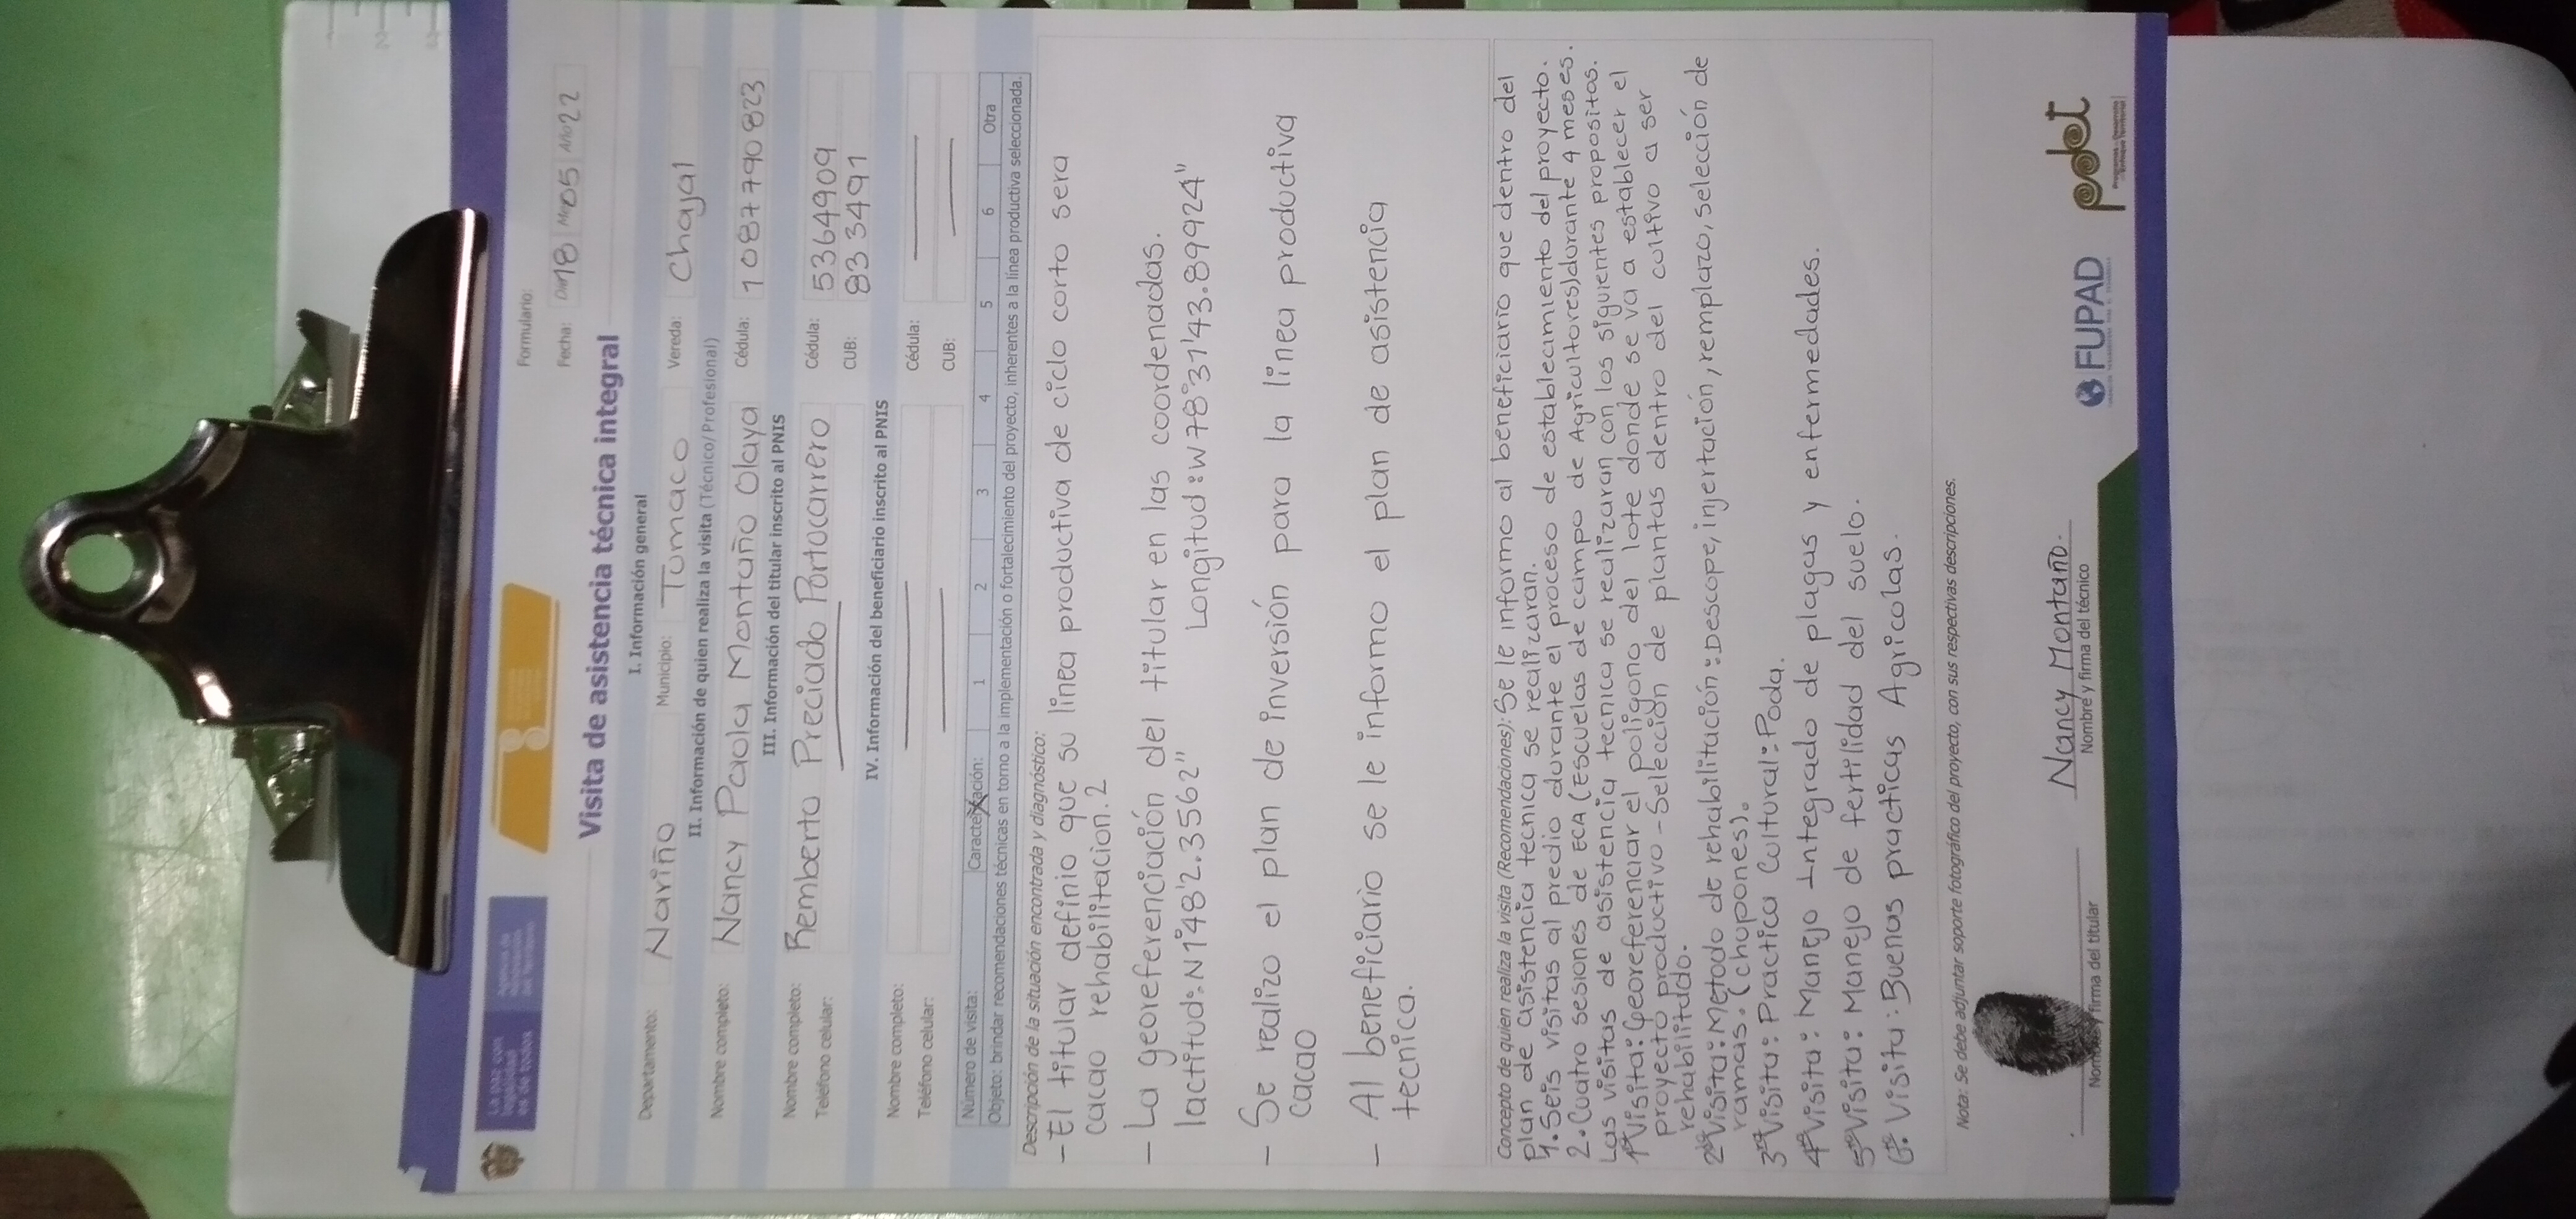 La paz con
legalidad
es de todos
Agencia de
Renovación
del Territorio
Formulario:
Fecha: Día 18 Mes 05 Año 22
Visita de asistencia técnica integral
I. Información general
Departamento: Nariño Municipio: Tumaco Vereda: Chajal
II. Información de quien realiza la visita (Técnico/Profesional)
Nombre completo: Nancy Paola Montaño Olaya Cédula: 1087790823
III. Información del titular inscrito al PNIS
Nombre completo: Remberto Preciado Portocarrero Cédula: 5364909
Teléfono celular: CUB: 8334491
IV. Información del beneficiario inscrito al PNIS
Nombre completo: Cédula:
Teléfono celular: CUB:
Número de visita: Caracterización: X 1 2 3 4 5 6 Otra
Objeto: brindar recomendaciones técnicas en torno a la implementación o fortalecimiento del proyecto, inherentes a la línea productiva seleccionada.
Descripción de la situación encontrada y diagnóstico:
- El titular definio que su linea productiva de ciclo corto sera
cacao rehabilitacion.2
- La georeferenciación del titular en las coordenadas.
lactitud: N1°48'2.3562" Longitud: W78°31'43.89924"
- Se realizo el plan de inversión para la linea productiva
cacao
- Al beneficiario se le informo el plan de asistencia
tecnica.
Concepto de quien realiza la visita (Recomendaciones): Se le informo al beneficiario que dentro del
plan de asistencia tecnica se realizaran.
1. Seis visitas al predio durante el proceso de establecimiento del proyecto.
2. Cuatro sesiones de ECA (Escuelas de campo de Agricultores) durante 4 meses.
Las visitas de asistencia tecnica se realizaran con los siguientes propositos.
1ª Visita: Georeferenciar el poligono del lote donde se va a establecer el
proyecto productivo - Selección de plantas dentro del cultivo a ser
rehabilitado.
2ª Visita: Metodo de rehabilitación: Descope, injertación, remplazo, selección de
ramas. (chupones).
3ª Visita: Practica Cultural: Poda.
4ª Visita: Manejo Integrado de plagas y enfermedades.
5ª Visita: Manejo de fertilidad del suelo.
6ª Visita: Buenas practicas Agricolas.
Nota: Se debe adjuntar soporte fotográfico del proyecto, con sus respectivas descripciones.
Nancy Montaño.
Nombre y firma del titular Nombre y firma del técnico
FUPAD
pdet